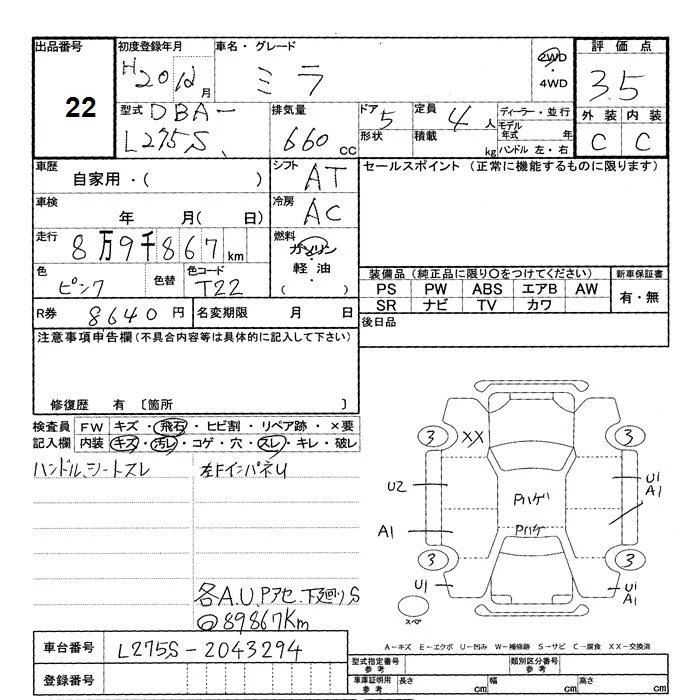 出品番号 22
初度登録年月 H20 12月
車名・グレード ミラ
2WD ・ 4WD
評価点 3.5
外装 C 内装 C
型式 DBA- L275S
排気量 660 CC
ドア 5 形状
定員 4人 積載 kg
ディーラー・並行
モデル年式 年
ハンドル 左・右
車歴 自家用・( )
シフト AT
セールスポイント (正常に機能するものに限ります)
車検 年 月( 日)
冷房 AC
走行 8万9千867km
燃料 ガソリン・軽油 ( )
色 ピンク 色替 色コード T22
装備品 (純正品に限り〇をつけてください) 新車保証書
PS PW ABS エアB AW 有・無
SR ナビ TV カワ
R券 8640円 名変期限 月 日
後日品
注意事項申告欄(不具合内容等は具体的に記入して下さい)
修復歴 有 〔箇所 〕
検査員 FW キズ・飛石・ヒビ割・リペア跡・×要
記入欄 内装 キズ・汚レ・コゲ・穴・スレ・キレ・破レ
ハンドル、シートスレ 左FインパネU
各A.U.Pアセ.下廻りS
◎89867Km
3 XX 3
U2 Pハゲ U1 A1
A1 Pハゲ
3 3
U1 U1 A1
スペア
A-キズ E-エクボ U-凹み W-補修跡 S-サビ C-腐食 XX-交換済
車台番号 L275S-2043294
登録番号
型式指定番号 参考 類別区分番号 参考
車庫証明用 参考 長さ cm 幅 cm 高さ cm